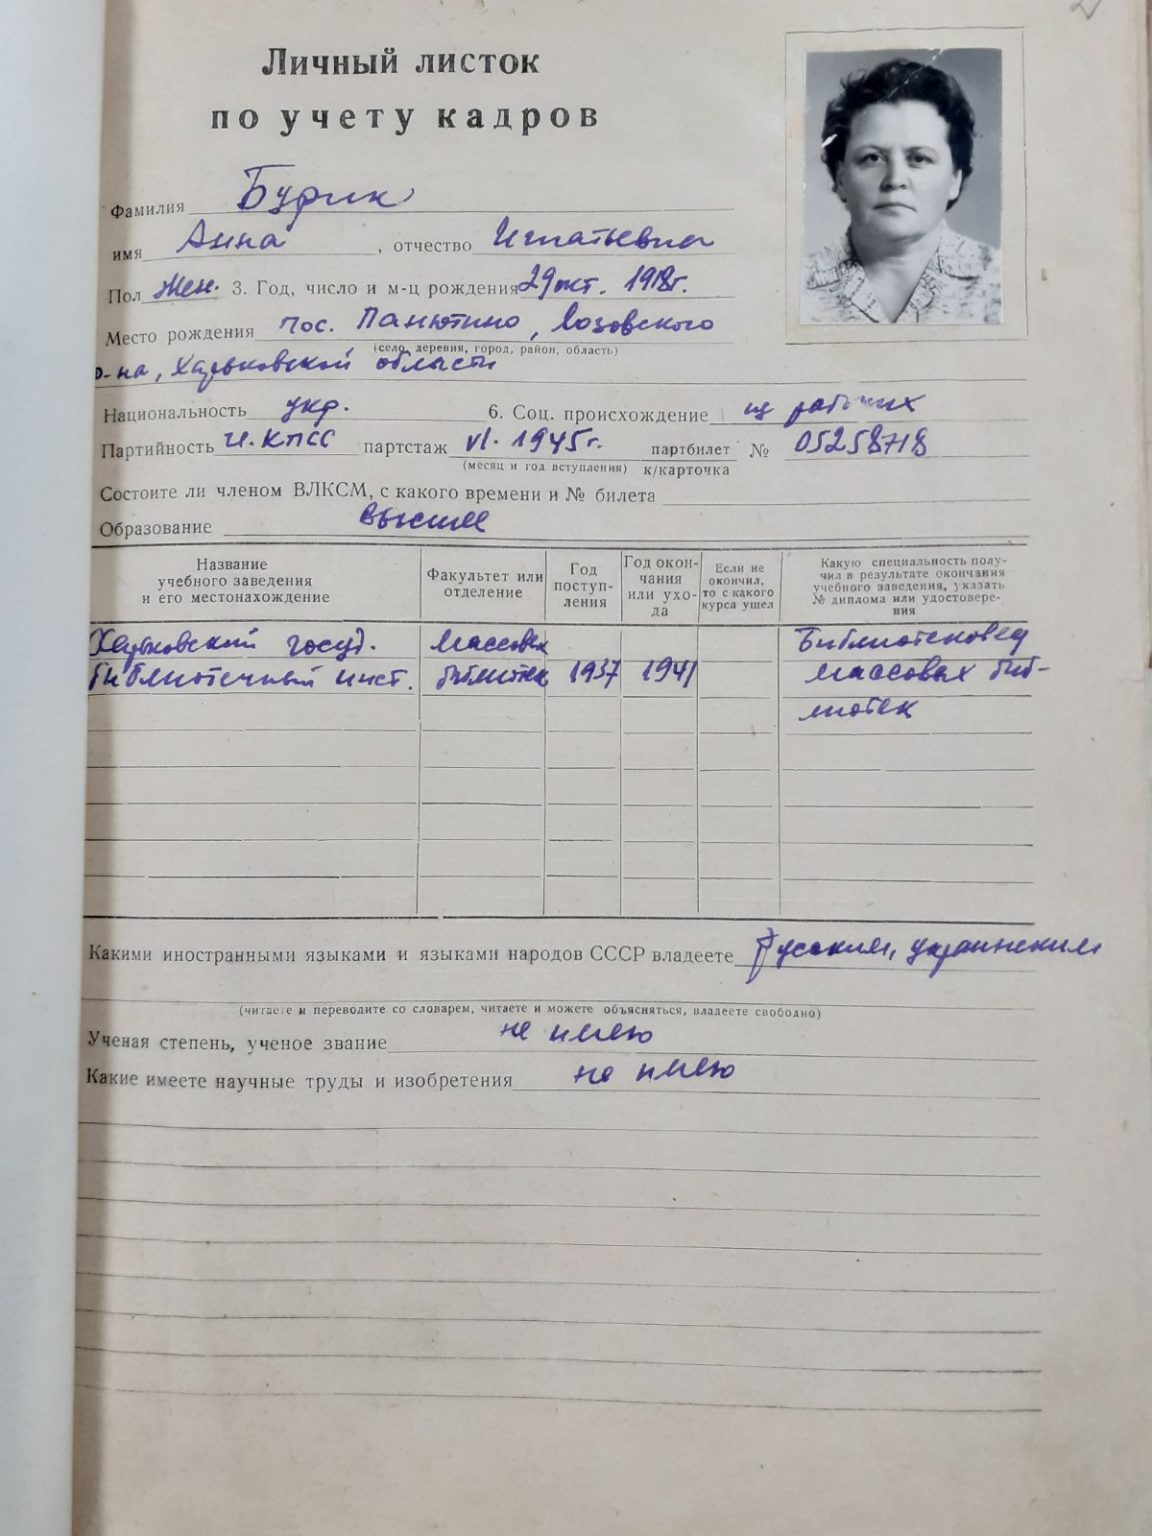 2
Личный листок
по учету кадров
Фамилия Бурик
имя Анна, отчество Игнатьевна
Пол жен. 3. Год, число и м-ц рождения 29 окт. 1918г.
Место рождения пос. Панютино, Лозовского
(село, деревня, город, район, область)
р-на, Харьковской области
Национальность укр. 6. Соц. происхождение из рабочих
Партийность чл. КПСС партстаж VI. 1945г. партбилет № 05258718
(месяц и год вступления) к/карточка
Состоите ли членом ВЛКСМ, с какого времени и № билета
Образование высшее
Название
учебного заведения
и его местонахождение
Факультет или
отделение
Год
поступ-
ления
Год окон-
чания
или ухо-
да
Если не
окончил,
то с какого
курса ушел
Какую специальность полу-
чил в результате окончания
учебного заведения, указать
№ диплома или удостовере-
ния
Харьковский госуд. массовых Библиотековед
библиотечный инст. библиотек 1937 1941 массовых биб-
лиотек
Какими иностранными языками и языками народов СССР владеете Русским, украинским
(читаете и переводите со словарем, читаете и можете объясняться, владеете свободно)
Ученая степень, ученое звание не имею
Какие имеете научные труды и изобретения не имею